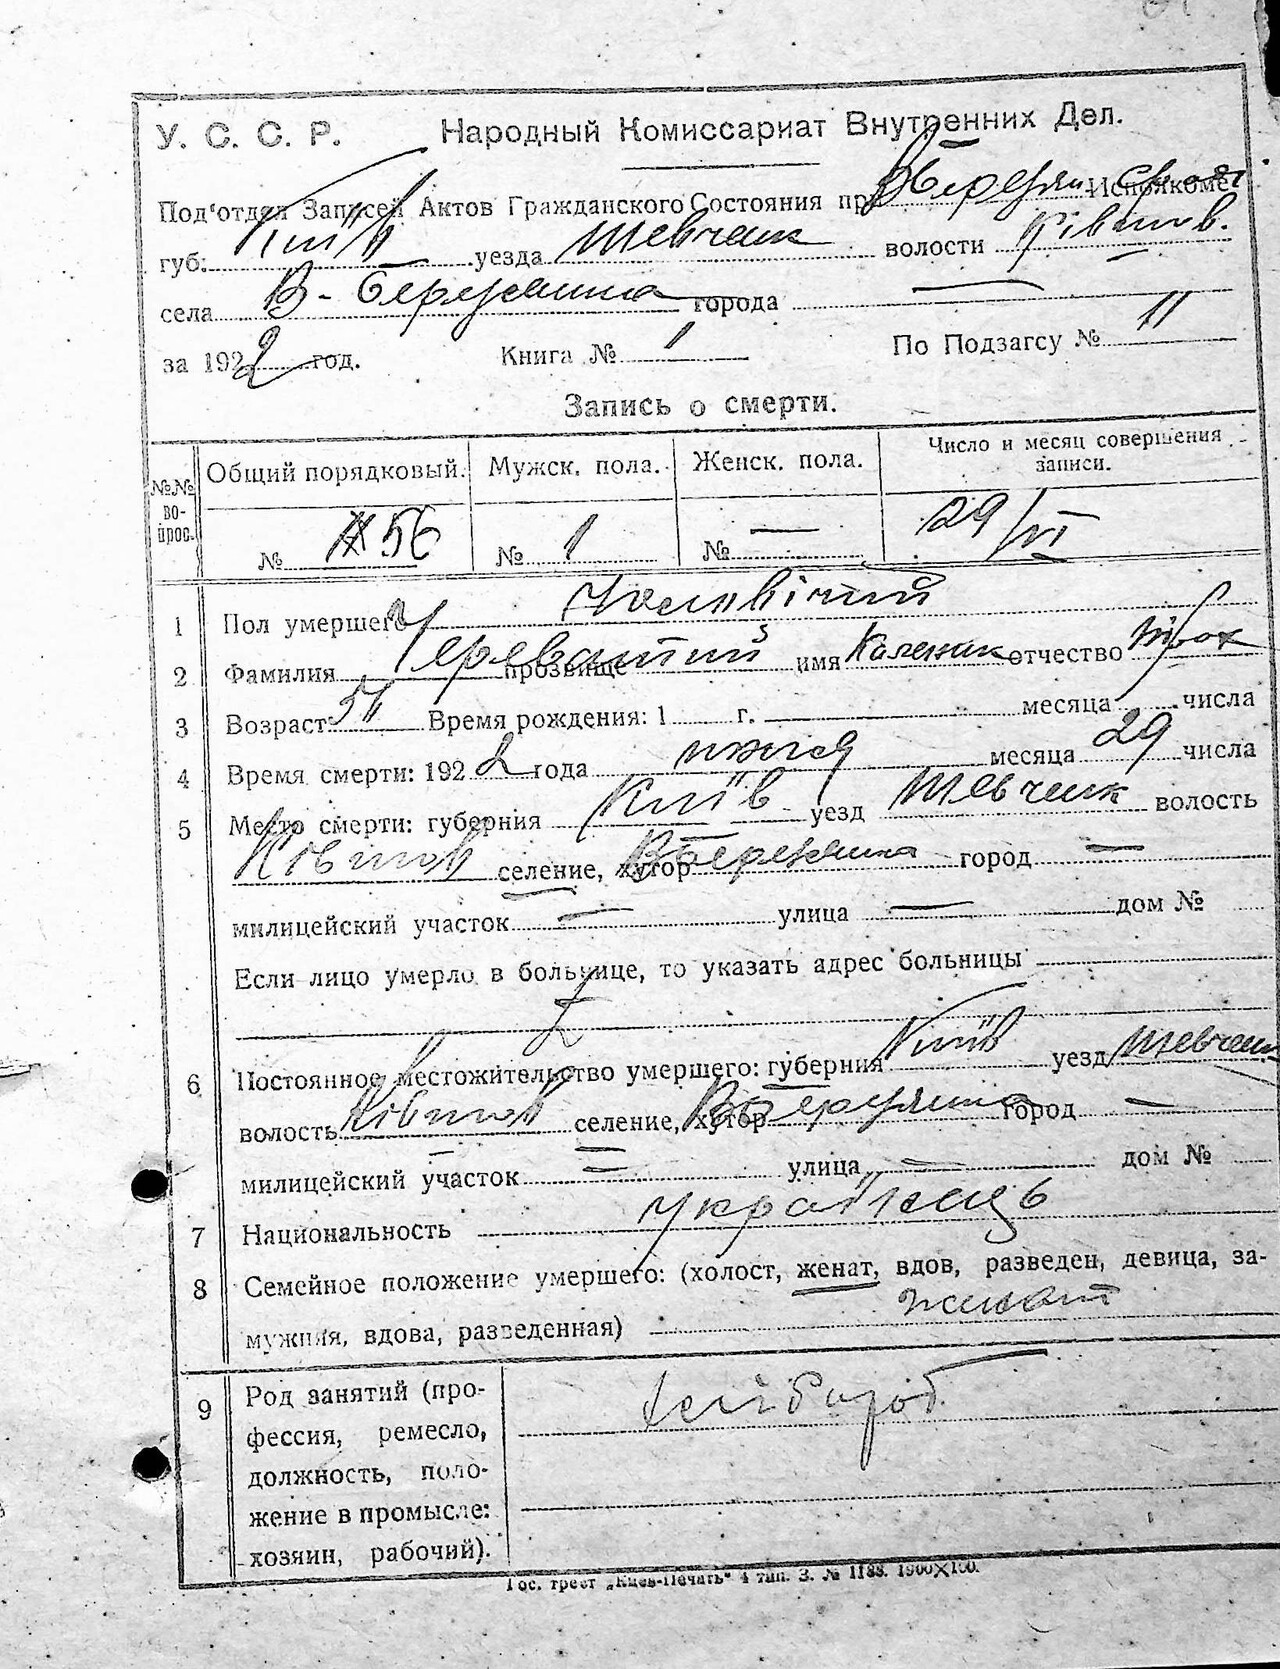 У. С. С. Р. Народный Комиссариат Внутренних Дел.
Под'отдел Записей Актов Гражданского Состояния при Исполкоме
губ: Київ уезда Шевченк волости
села В-Бережанка города —
за 1922 год. Книга № 1 По Подзагсу № 11
Запись о смерти.
№№ во-прос. Общий порядковый. Мужск. пола. Женск. пола. Число и месяц совершения записи.
№ 56 № 1 № — 29/VI
1 Пол умершего Чоловічий
2 Фамилия прозвище имя Каленик отчество Трох
3 Возраст Время рождения: 1 г. — месяца числа
4 Время смерти: 1922 года месяца 29 числа
5 Место смерти: губерния Київ уезд Шевченк волость
селение, хутор город —
милицейский участок — улица — дом №
Если лицо умерло в больнице, то указать адрес больницы
6 Постоянное местожительство умершего: губерния Київ уезд Шевченк
волость селение, хутор город —
милицейский участок — улица — дом №
7 Национальность Українець
8 Семейное положение умершего: (холост, женат, вдов, разведен, девица, за-
мужняя, вдова, разведенная) женат
9 Род занятий (про-
фессия, ремесло, хлібороб
должность, поло-
жение в промысле:
хозяин, рабочий).
Гос. трест „Киев-Печать" 4 тип. З. № 1188. 1900×100.